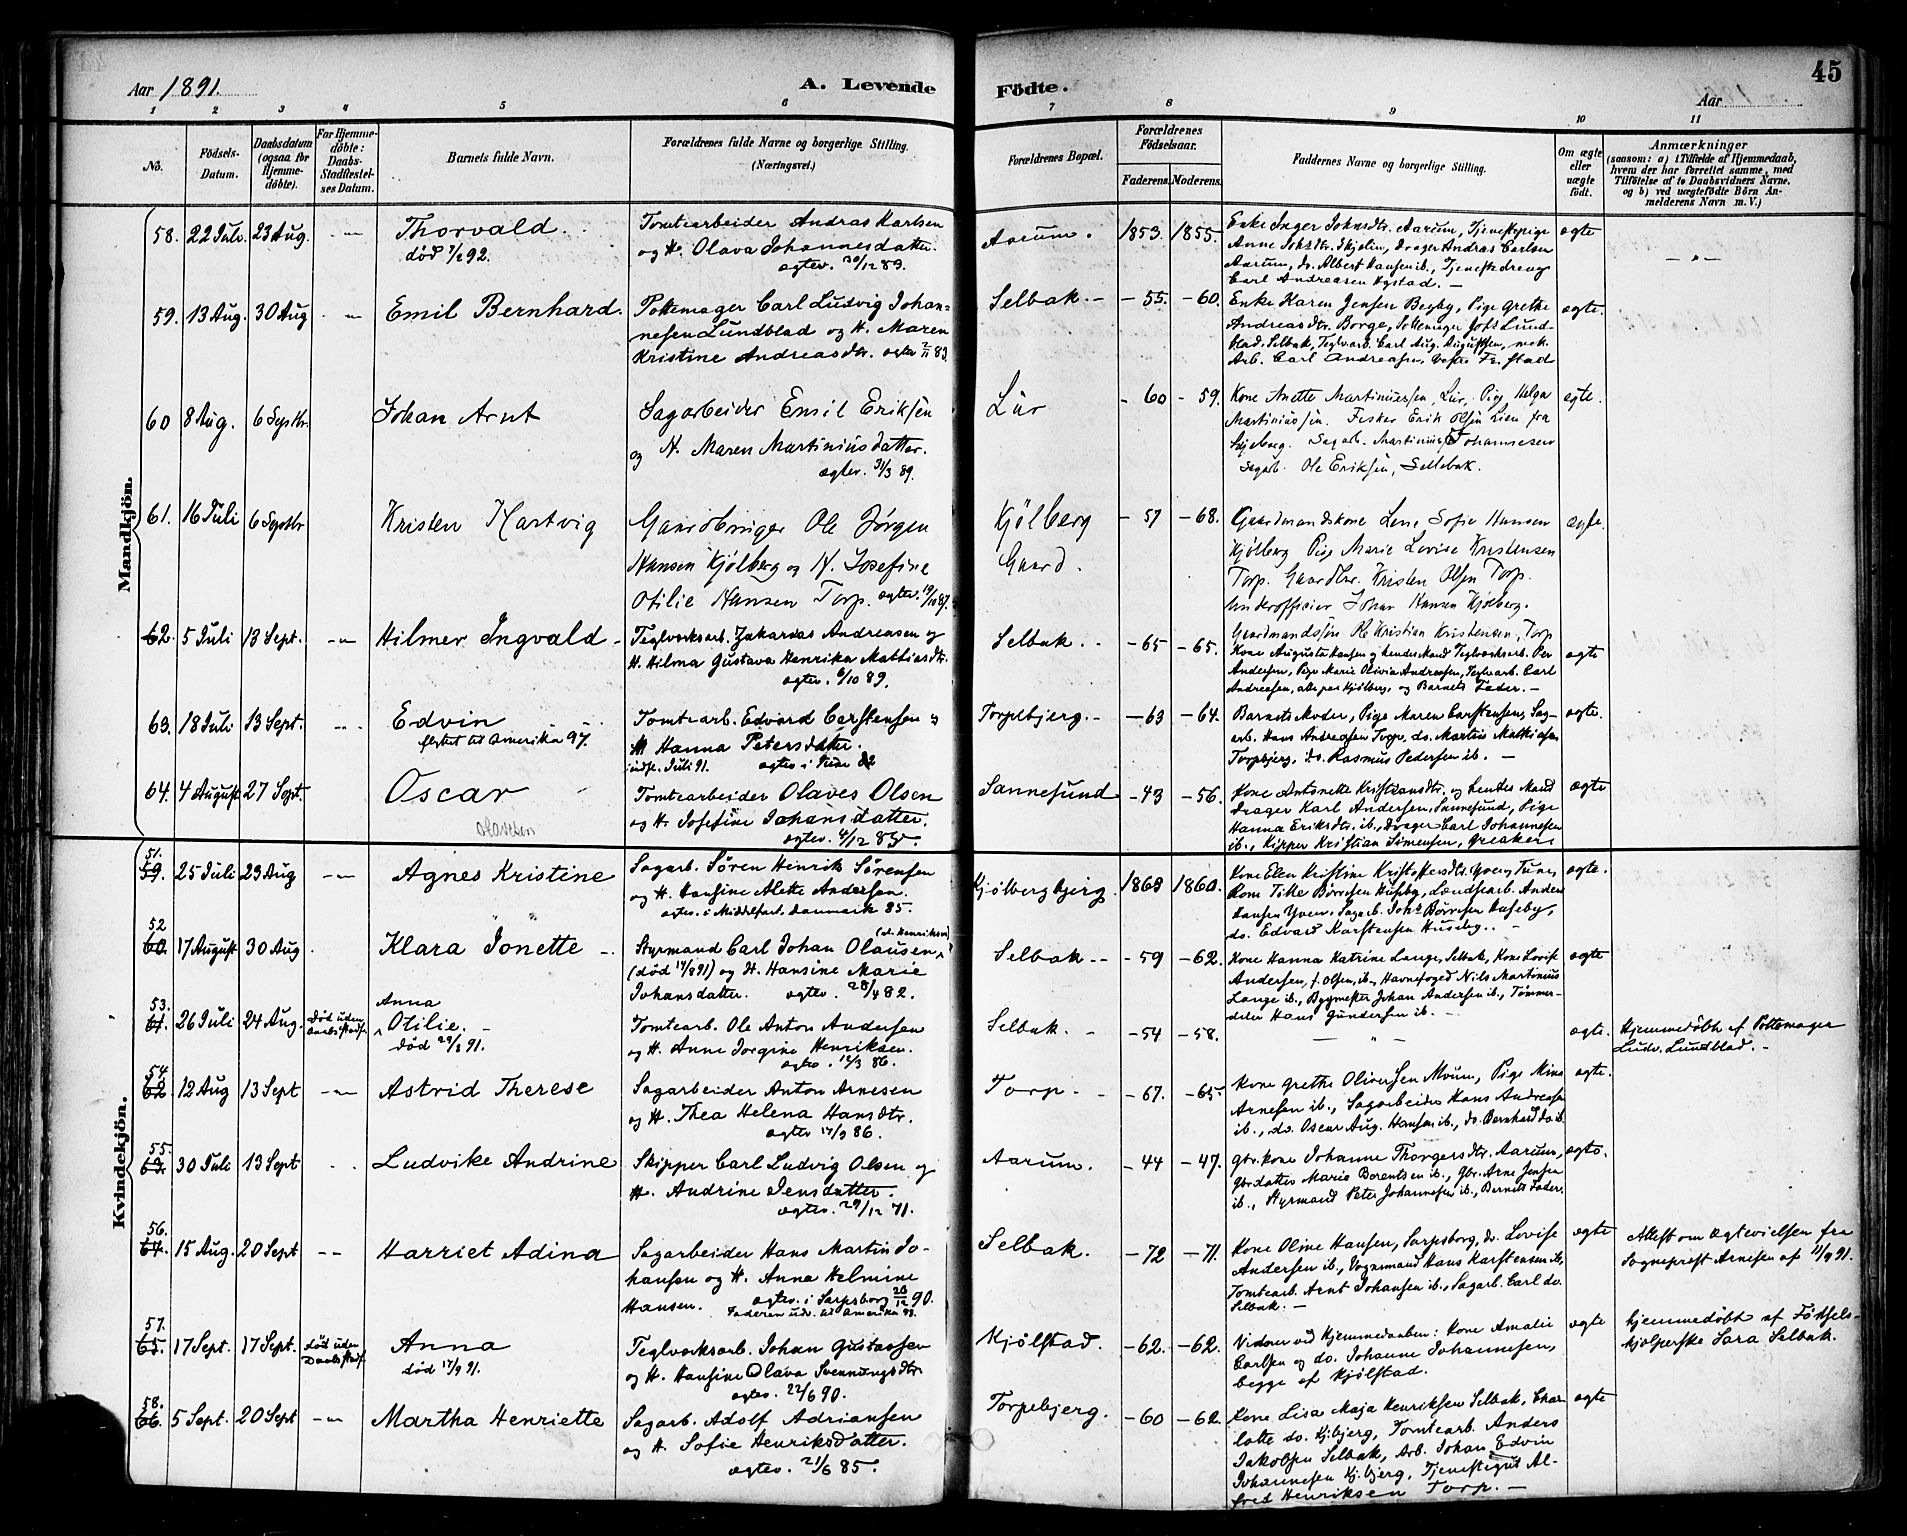 45
Aar 1891.
A. Levende
Födte.
Aar
1 2 3 4 5 6 7 8 9 10 11
No.
Födsels-Datum.
Daabsdatum (ogsaa for Hjemme-döbte).
For Hjemme-döbte: Daabs-Stadfæstel-ses Datum.
Barnets fulde Navn.
Forældrenes fulde Navne og borgerlige Stilling. (Næringsvei.)
Forældrenes Bopæl.
Forældrenes Födselsaar.
Faderens.
Moderens.
Faddernes Navne og borgerlige Stilling.
Om ægte eller uægte födt.
Anmærkninger
(saasom: a) i Tilfælde af Hjemmedaab, hvem der har forrettet samme, med Tilföielse af to Daabsvidners Navne, og b) ved uægtefödte Börn An-melderens Navn m. V.)
Mandkjön.
58. 22 Juli. 23 Aug. Thorvald. Tomtearbeider Andras Karlsen Aarum. 1853. 1855. ægte
død 1/2 92. og H. Olava Johannesdatter
ægtev. 30/12 83.
59. 13 Aug. 30 Aug Emil Bernhard. Pottemager Carl Ludvig Johan- Selbak. - 55. - 60. Enke Karen Jensen Begby, Pige Grethe ægte.
nesen Lundblad og H. Maren Andreasdtr. Borge, Pottemager Johs Lund-
Kristine Andreasdtr. ægtev 2/11 83. blad, Selbak, Teglværksarb. Carl Aug. Augustsen,
Arb. Carl Andreasen,
60 8 Aug. 6 Septbr. Johan Arnt Sagarbeider Emil Eriksen Lür - 60 - 59. Kone Anette Martiniussen, Lür, Pige Helga ægte.
og H. Maren Martiniusdatter. Martiniussen. Fisker Erik Olsen Lien fra
ægtev. 31/3 89. Skjeberg. Sagarb. Martinius Johannesen
Sagarb. Ole Eriksen, Sellebak.
61. 16 Juli 6 Septbr Kristen Hartvig Gaardbruger Ole Jørgen Kjølberg - 57 - 68. Gaardmandskone Lene Sofie Hansen ægte.
Hansen Kjølberg og H. Josefine Gaard. Kjølberg Pige Marie Lovise Kristensen
Otilie Hansen Torp. ægtev. 19/10 87. Torp. Gaardbr. Kristen Olsen Torp.
Underofficier Johan Hansen Kjølberg.
Gaardmandssøn Ole Kristian Kristensen, Torp
62. 5 Juli 13 Sept. Hilmer Ingvald Teglværksarb. Zakarias Andreasen og Selbak. - 65 - 65. Kone Augusta Hansen og hendes Mand Teglværksarb. Per ægte
H. Hilma Gustava Henrika Mathiasdtr. Andersen, Pige Marie Olivia Andreasen, Teglværksarb. Carl
ægtev. 6/10 89. Andreasen, alle paa Kjølberg, og Barnets Fader.
63. 18 Juli 13 Sept. Edvin Tomtearb. Edvard Carstensen og Torpebjerg. - 63 - 64. Barnets Moder, Pige Maren Carstensen, Sag- ægte.
flyttet til Amerika 97. H. Hanna Petersdatter. arb. Hans Andreasen Torp, do. Martin Mathiasen
indfl. Juli 91. Torpebjerg, do. Rasmus Pedersen ib.
64. 4 August 27 Sept. Oscar Tomtearbeider Olaves Olsen Sannesund - 43 - 56. Kone Antonette Kristiansdtr. og hendes Mand ægte
Olavesen og H. Josefine Johansdatter. Drager Karl Andersen, Sannesund, Pige
ægtev. 4/12 85. Hanna Eriksdtr. ib., Drager Carl Johannesen
ib., Kipper Kristian Simensen, Greaker.
Kvindekjön.
51. 59. 25 Juli 23 Aug Agnes Kristine Sagarb. Søren Henrik Sørensen Kjølbergbjerg. 1863 1860. Kone Elen Kristine Kristoffersdtr. Yven, Tune, ægte.
og H. Hansine Alette Andersen. Kone Tilla Børresen Huseby, Landsarb. Anders
ægtev. i Middelfart, Danmark 85. Hansen Yven, Sagarb. Johs Børresen Huseby,
do. Edvard Karstensen Huseby.
52 60. 17 August 30 Aug Klara Jonette Styrmand Carl Johan Olausen, Selbak. - 59 - 62. Kone Hanna Katrine Lange, Selbak, Kone Lovise ægte
(død 17/8 91) og H. Hansine Marie Andersen, f. Olsen, ib., Havnefoged Nils Martinius
Johansdatter. ægtev. 28/4 82. Lange ib., Bygmester Johan Andersen ib., Tømmer-
deler Hans Gundersen ib.
53. 61. 26 Juli 24 Aug. Død uden Daabsstadf. Anna Otilie. Tomtearb. Ole Anton Andersen Selbak. - 54 - 58. ægte. Hjemmedøbt af Pottemager
død 29/8 91. og H. Anne Jorgine Henriksen. Ludv. Lundblad.
ægtev. 12/3 86.
54. 62. 12 Aug 13 Sept Astrid Therese Sagarbeider Anton Arnesen Torp. - 67. - 65 Kone Grethe Oliversen Moum, Pige Mina ægte.
og H. Thea Helena Hansdtr. Arnesen ib., Sagarbeider Hans Andreasen
ægtev 17/9 86. ib., do. Oscar Aug. Hansen ib., do. Bernhard do. ib.
55. 63. 30 Juli 13 Sept Ludvike Andrine Skipper Carl Ludvig Olsen og Aarum. - 44 - 47. Gbr.kone Johanne Thorgersdtr. Aarum, ægte.
H. Andrine Jensdatter. Gbrdatter Marie Berentsen ib., Gbr. Arne Jensen
ægtev. 29/12 71. ib., Styrmand Peter Johannesen ib., Barnets Fader.
56. 64. 15 Aug. 20 Sept Harriet Adina Sagarbeider Hans Martin Jo- Selbak. - 72 - 71. Kone Oline Hansen, Sarpsborg, do. Lovise ægte Attest om Ægtevielsen fra
hansen og H. Anna Helmine Andersen ib., Vognmand Hans Karstensen ib., Sogneprest Arnesen af 11/9 91.
Hansen. ægtev. i Sarpsborg 28/12 90. Tomtearb. Arnt Johansen ib., Sagarb. Carl do.
Faderen udv. til Amerika 93. Selbak.
57. 65. 17 Sept. 17 Sept. død uden Daabsstadf. Anna Teglværksarb. Johan Gustavsen Kjølstad. - 62. - 62. Vidner ved Hjemmedaaben: Kone Amalie ægte Hjemmedøbt af Fødsels-
død 17/9 91. og H. Hansine Olava Svennungsdtr. Carlsen og do. Johanne Johannesen, hjælperske Sara Selbak.
ægtev. 22/6 90. begge af Kjølstad.
58. 66. 5 Sept. 20 Sept Martha Henriette Sagarb. Adolf Adriansen Torpebjerg. - 60 - 62. Kone Lisa Maja Henriksen Selbak, Char- ægte
og H. Sofie Henriksdatter. lotte do. Kjbjerg, Tomtearb. Anders
ægtev. 21/6 85. Jakobsen Selbak, Arb. Johan Edvin
Johannesen Kj.bjerg, Tjenestegut Al-
fred Henriksen Torp.